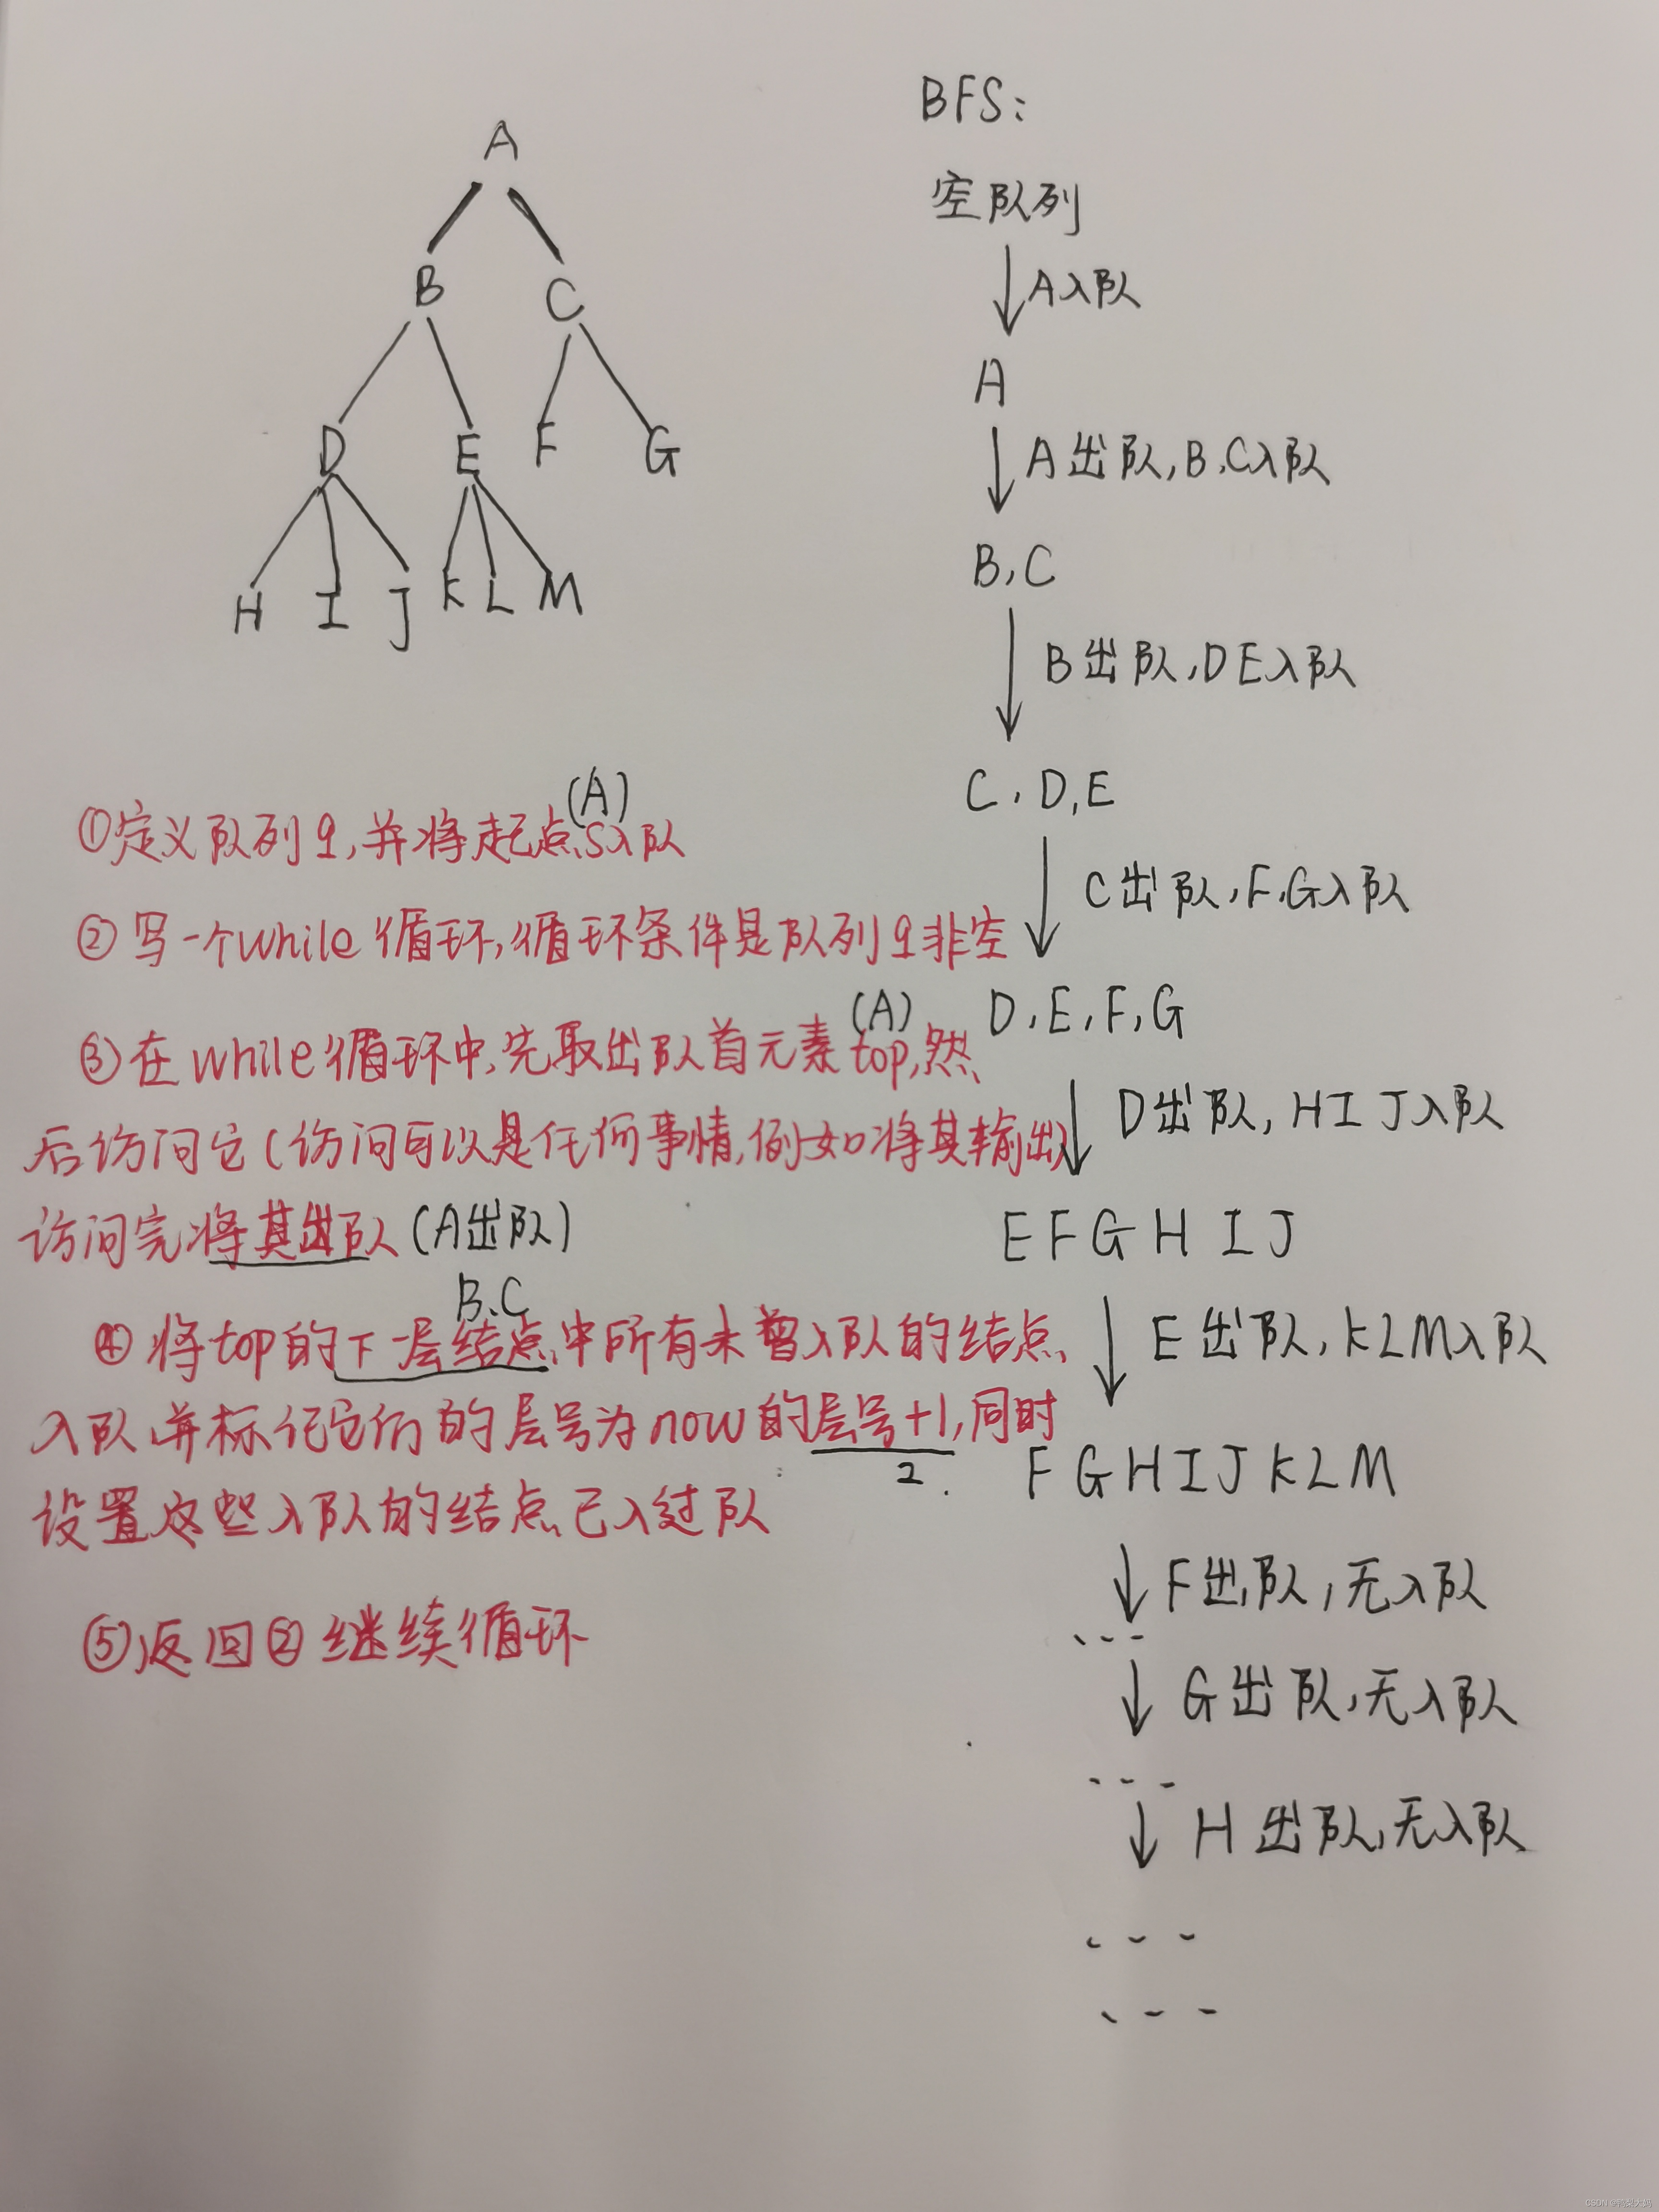 A
B C
D E F G
H I J K L M
(A)
①定义队列q,并将起点S入队
②写一个while循环,循环条件是队列q非空
(A)
③在while循环中,先取出队首元素top,然
后访问它(访问可以是任何事情,例如将其输出)
访问完将其出队(A出队)
B、C
④将top的下一层结点中所有未曾入队的结点
入队,并标记它们的层号为now的层号+1,同时
2
设置这些入队的结点已入过队
⑤返回②继续循环
BFS:
空队列
A入队
A
A出队,B,C入队
B,C
B出队,DE入队
C,D,E
C出队,F,G入队
D,E,F,G
D出队,HIJ入队
EFGHIJ
E出队,KLM入队
FGHIJKLM
F出队,无入队
---
G出队,无入队
---
H出队,无入队
---
---